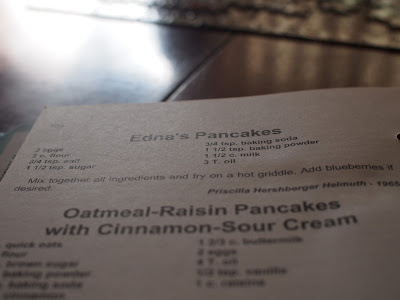 Edna's Pancakes
2 eggs
2 c. flour
3/4 tsp. salt
1 1/2 tsp. sugar
3/4 tsp. baking soda
1 1/2 tsp. baking powder
1 1/2 c. milk
3 T. oil
Mix together all ingredients and fry on a hot griddle. Add blueberries if
desired.
Priscilla Hershberger Helmuth - 1965
Oatmeal-Raisin Pancakes
with Cinnamon-Sour Cream
quick oats
flour
brown sugar
baking powder
baking soda
cinnamon
1 2/3 c. buttermilk
2 eggs
4 T. oil
1/2 tsp. vanilla
1 c. raisins